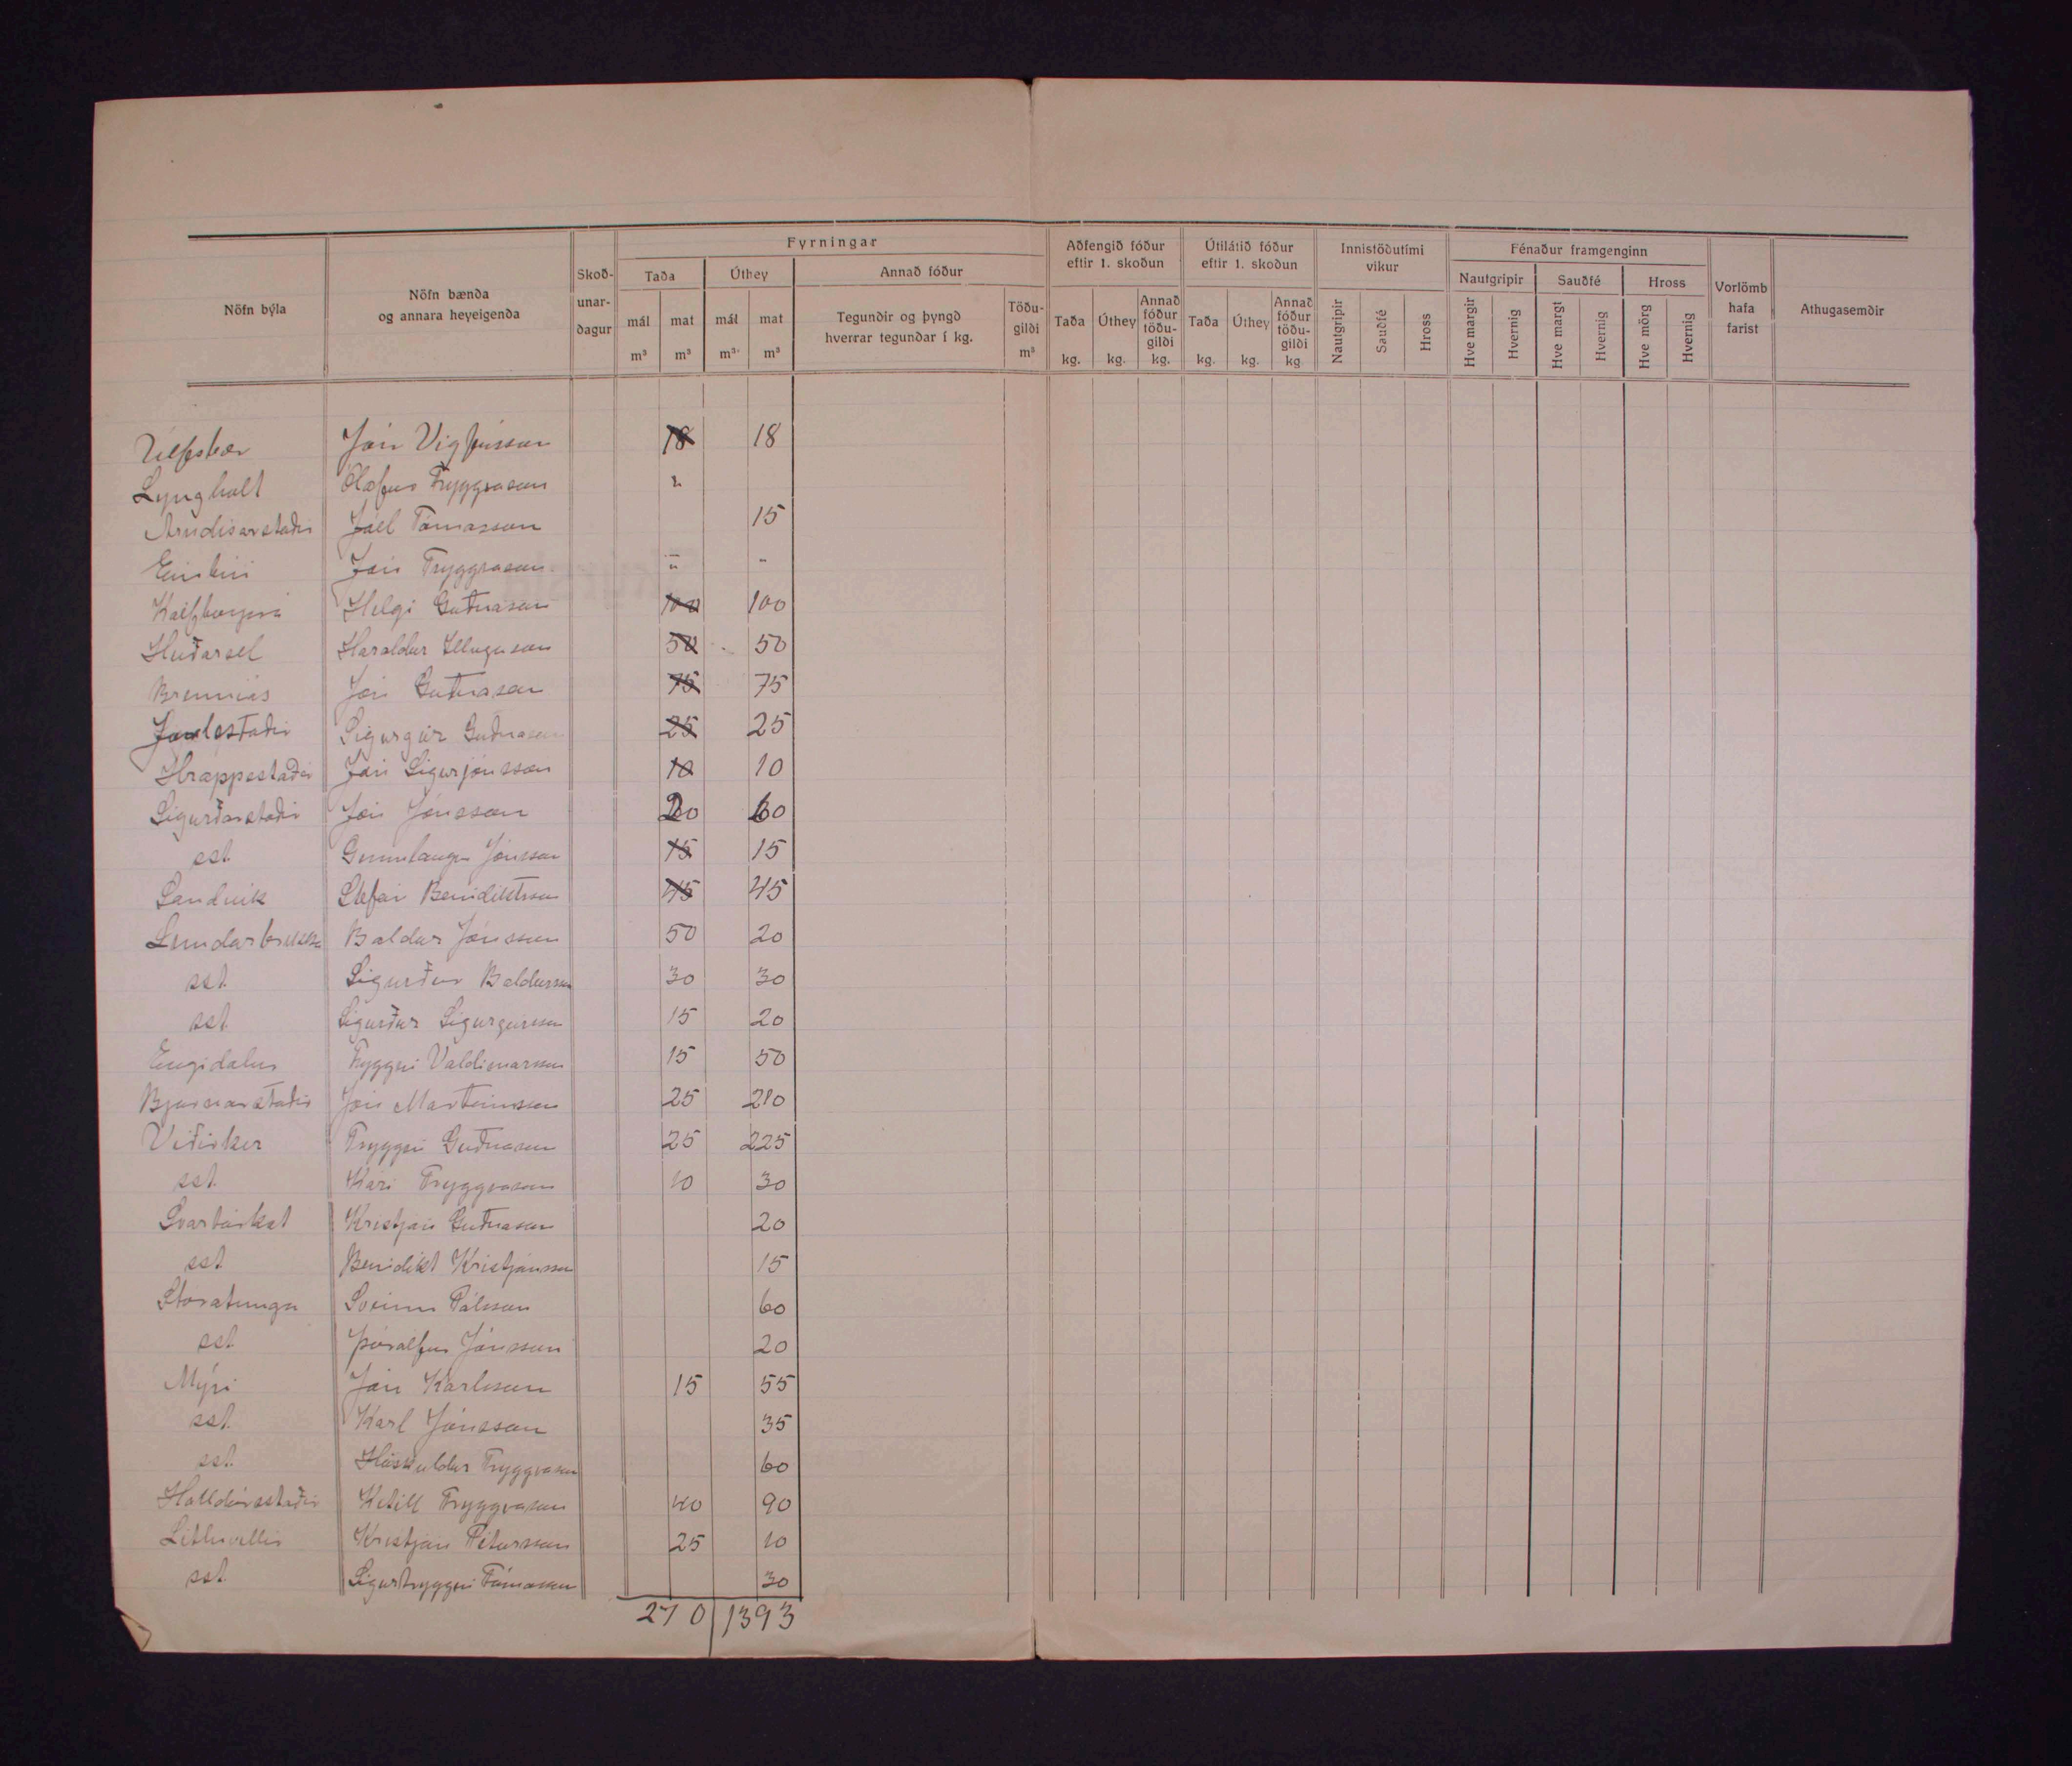 Fyrningar
Aðfengið fóður eftir 1. skoðun
Útilátið fóður eftir 1. skoðun
Innistöðutími vikur
Fénaður framgenginn
Nöfn býla
Nöfn bænda og annara heyeigenda
Skoð-unar-dagur
Taða
Úthey
Annað fóður
Nautgripir
Sauðfé
Hross
Vorlömb hafa farist
Athugasemdir
mál m³
mat m³
mál m³
mat m³
Tegundir og þyngd hverrar tegundar í kg.
Töðu-gildi m³
Taða kg.
Úthey kg.
Annað fóður töðu-gildi kg.
Taða kg.
Úthey kg.
Annað fóður töðu-gildi kg.
Nautgripir
Sauðfé
Hross
Hve margir
Hvernig
Hve margt
Hvernig
Hve mörg
Hvernig
Úlfsbær Jón Vigfússon 18 18
Lyngholt Ólafur Tryggvason "
Arndísarstaðir Jóel Tómasson 15
Einbúi Jón Tryggvason " -
Kálfborgará Helgi Guðnason 100 100
Hlíðarsel Haraldur Illugason 50 50
Brenniás Jón Guðnason 75 75
Jarlstaðir Sigurgeir Guðnason 25 25
Hrappsstaðir Jón Sigurjónsson 10 10
Sigurðarstaðir Jón Jónsson 20 60
sst. Gunnlaugur Jónsson 15 15
Sandvík Stefán Benidiktsson 45 45
Lundarbrekka Baldur Jónsson 50 20
sst. Sigurður Baldursson 30 30
sst. Sigurður Sigurgeirsson 15 20
Engidalur Tryggvi Valdimarsson 15 50
Bjarnarstaðir Jón Marteinsson 25 210
Víðirker Tryggvi Guðnason 25 225
sst. Kári Tryggvason 10 30
Svartárkot Kristján Guðnason 20
sst. Benidikt Kristjánsson 15
Stóratunga Sveinn Pálsson 60
sst. Þórólfur Jónsson 20
Mýri Jón Karlsson 15 55
sst. Karl Jónsson 35
sst. Höskuldur Tryggvason 60
Halldórsstaðir Ketill Tryggvason 40 90
Litluvellir Kristján Pétursson 25 10
sst. Sigurtryggvi Tómasson 30
270 1393